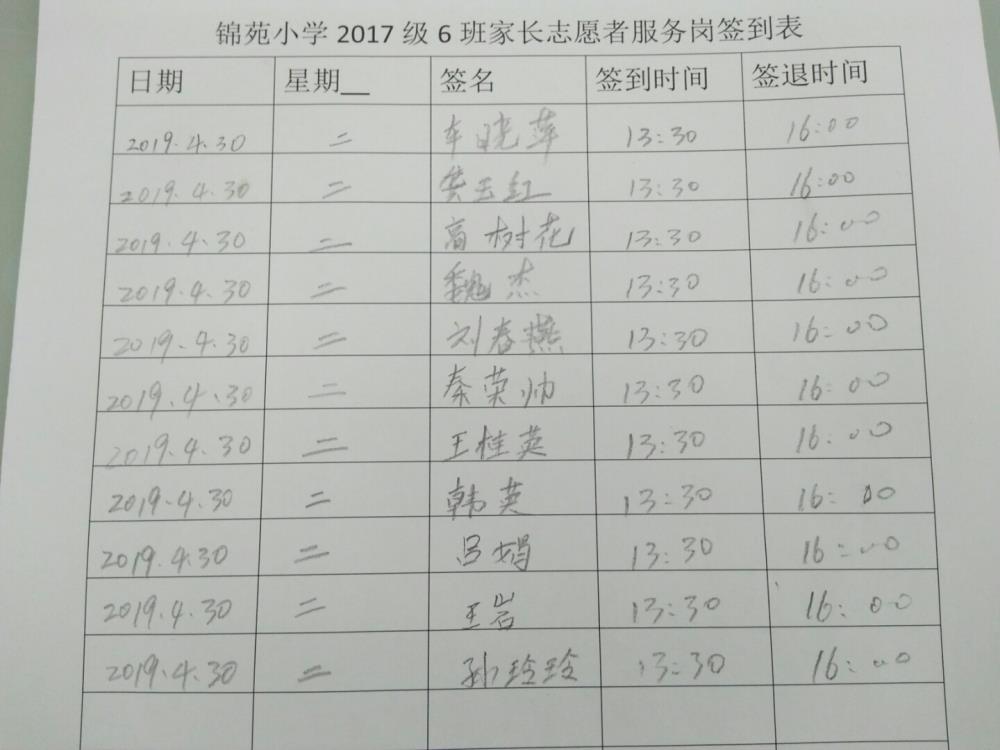 锦苑小学 2017 级 6 班家长志愿者服务岗签到表
日期 星期__ 签名 签到时间 签退时间
2019.4.30 二 车晓萍 13:30 16:00
2019.4.30 二 樊玉红 13:30 16:00
2019.4.30 二 高树花 13:30 16:00
2019.4.30 二 魏杰 13:30 16:00
2019.4.30 二 刘春燕 13:30 16:00
2019.4.30 二 秦荣帅 13:30 16:00
2019.4.30 二 王桂英 13:30 16:00
2019.4.30 二 韩英 13:30 16:00
2019.4.30 二 吕娟 13:30 16:00
2019.4.30 二 王岩 13:30 16:00
2019.4.30 二 孙玲玲 13:30 16:00